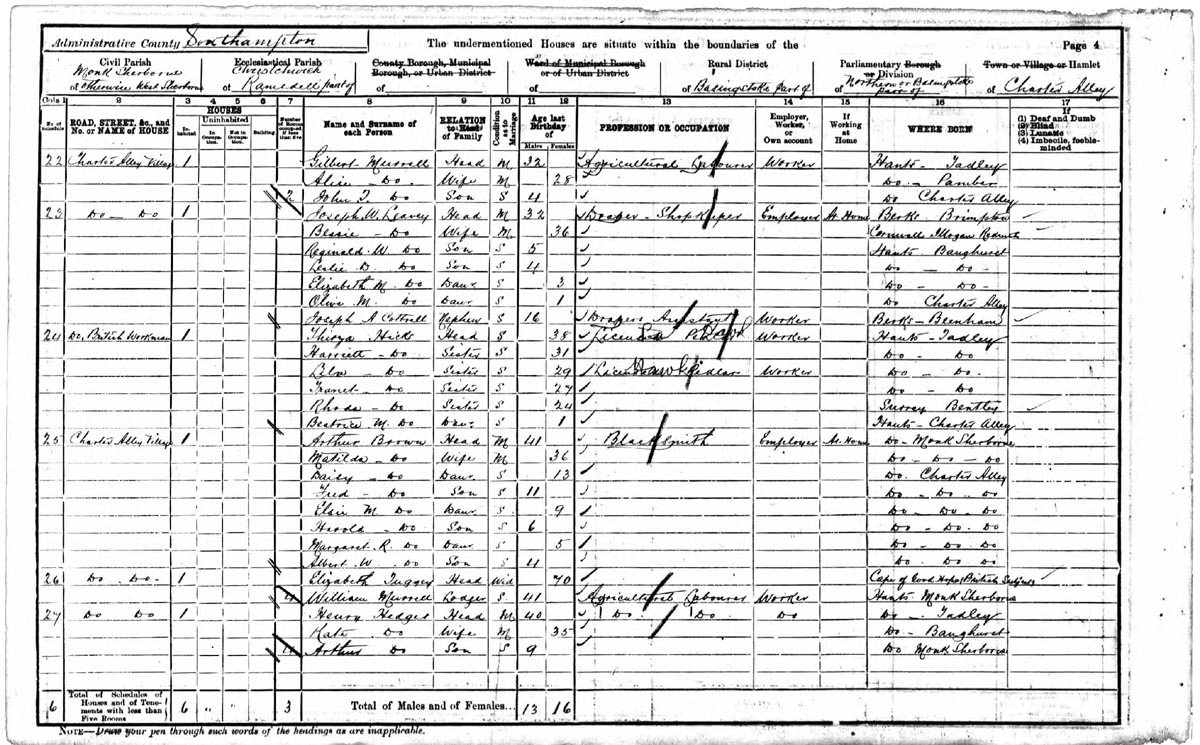 Administrative County Southampton
The undermentioned Houses are situate within the boundaries of the
Page 4
Civil Parish
Ecclesiastical Parish
County Borough, Municipal Borough, or Urban District
Ward of Municipal Borough or of Urban District
Rural District
Parliamentary Borough or Division
Town or Village or Hamlet
Monk Sherborne
of otherwise West Sherborne
of Ramsdell part of
of
of
of Basingstoke part of
of Northern or Basingstoke part of
of Charter Alley
Cols 1 2 3 4 5 6 7 8 9 10 11 12 13 14 15 16 17
No. of Schedule
ROAD, STREET, &c., and No. or NAME of HOUSE
HOUSES
Inhabited
Uninhabited
In Occupation.
Not in Occupation.
Building
Number of Rooms occupied if less than five
Name and Surname of each Person
RELATION to Head of Family
Condition as to Marriage
Age last Birthday of
Males
Females
PROFESSION OR OCCUPATION
Employer, Worker, or Own account
If Working at Home
WHERE BORN
If
(1) Deaf and Dumb
(2) Blind
(3) Lunatic
(4) Imbecile, feeble-minded
22 Charter Alley Village 1 Gilbert Murrell Head M 32 Agricultural Labourer Worker Hants - Tadley
Alice - Do Wife M 28 Do - Pamber
2 John T. Do Son S 4 Do Charter Alley
23 Do - Do 1 Joseph W. Leavey Head M 32 Draper - Shopkeeper Employer At Home Berks Brimpton
Bessie - Do Wife M 36 Cornwall Illogan Redruth
Reginald W Do Son S 5 Hants Baughurst
Leslie D. Do Son S 4 Do - Do -
Elizabeth M. Do Daur S 3 Do - Do -
Olive M. Do Daur S 1 Do Charter Alley
Joseph A Cottrell Nephew S 16 Drapers Assistant Worker Berks - Beenham
24 Do, British Workman 1 Thirza Hicks Head S 38 Licensed Hawk Worker Hants - Tadley
Harriett - Do Sister S 31 Do - Do
Lila - Do Sister S 29 Hawk Pedlar Worker Do - Do
Do Sister S 27 Do - Do
Rhoda - Do Sister S 24 Surrey Bentley
Beatrice M. Do Daur S 1 Hants - Charter Alley
25 Charter Alley Village 1 Arthur Brown Head M 41 Blacksmith Employer At Home Do - Monk Sherborne
Matilda - Do Wife M 36 Do - Do - Do
Daisy - Do Daur S 13 Do. Charter Alley
Fred - Do Son S 11 Do - Do - Do
Elsie M Do Daur S 9 Do - Do - Do
Harold - Do Son S 6 Do - Do. Do
Margaret R. Do Daur S 5 Do - Do - Do
Albert W. Do Son S 4 Do. Do. Do
26 Do. Do. 1 Elizabeth Tuggey Head Wid 70 Cape of Good Hope, British Subject
4 William Murrell Lodger S 41 Agricultural Labourer Worker Hants Monk Sherborne
27 Do Do 1 Henry Hedges Head M 40 Do Do Do Do - Tadley
Kate Do Wife M 35 Do - Baughurst
4 Arthur Do Son S 9 Do Monk Sherborne
6 Total of Schedules of Houses and of Tenements with less than Five Rooms 6 " " 3 Total of Males and of Females... 13 16
NOTE—Draw your pen through such words of the headings as are inapplicable.